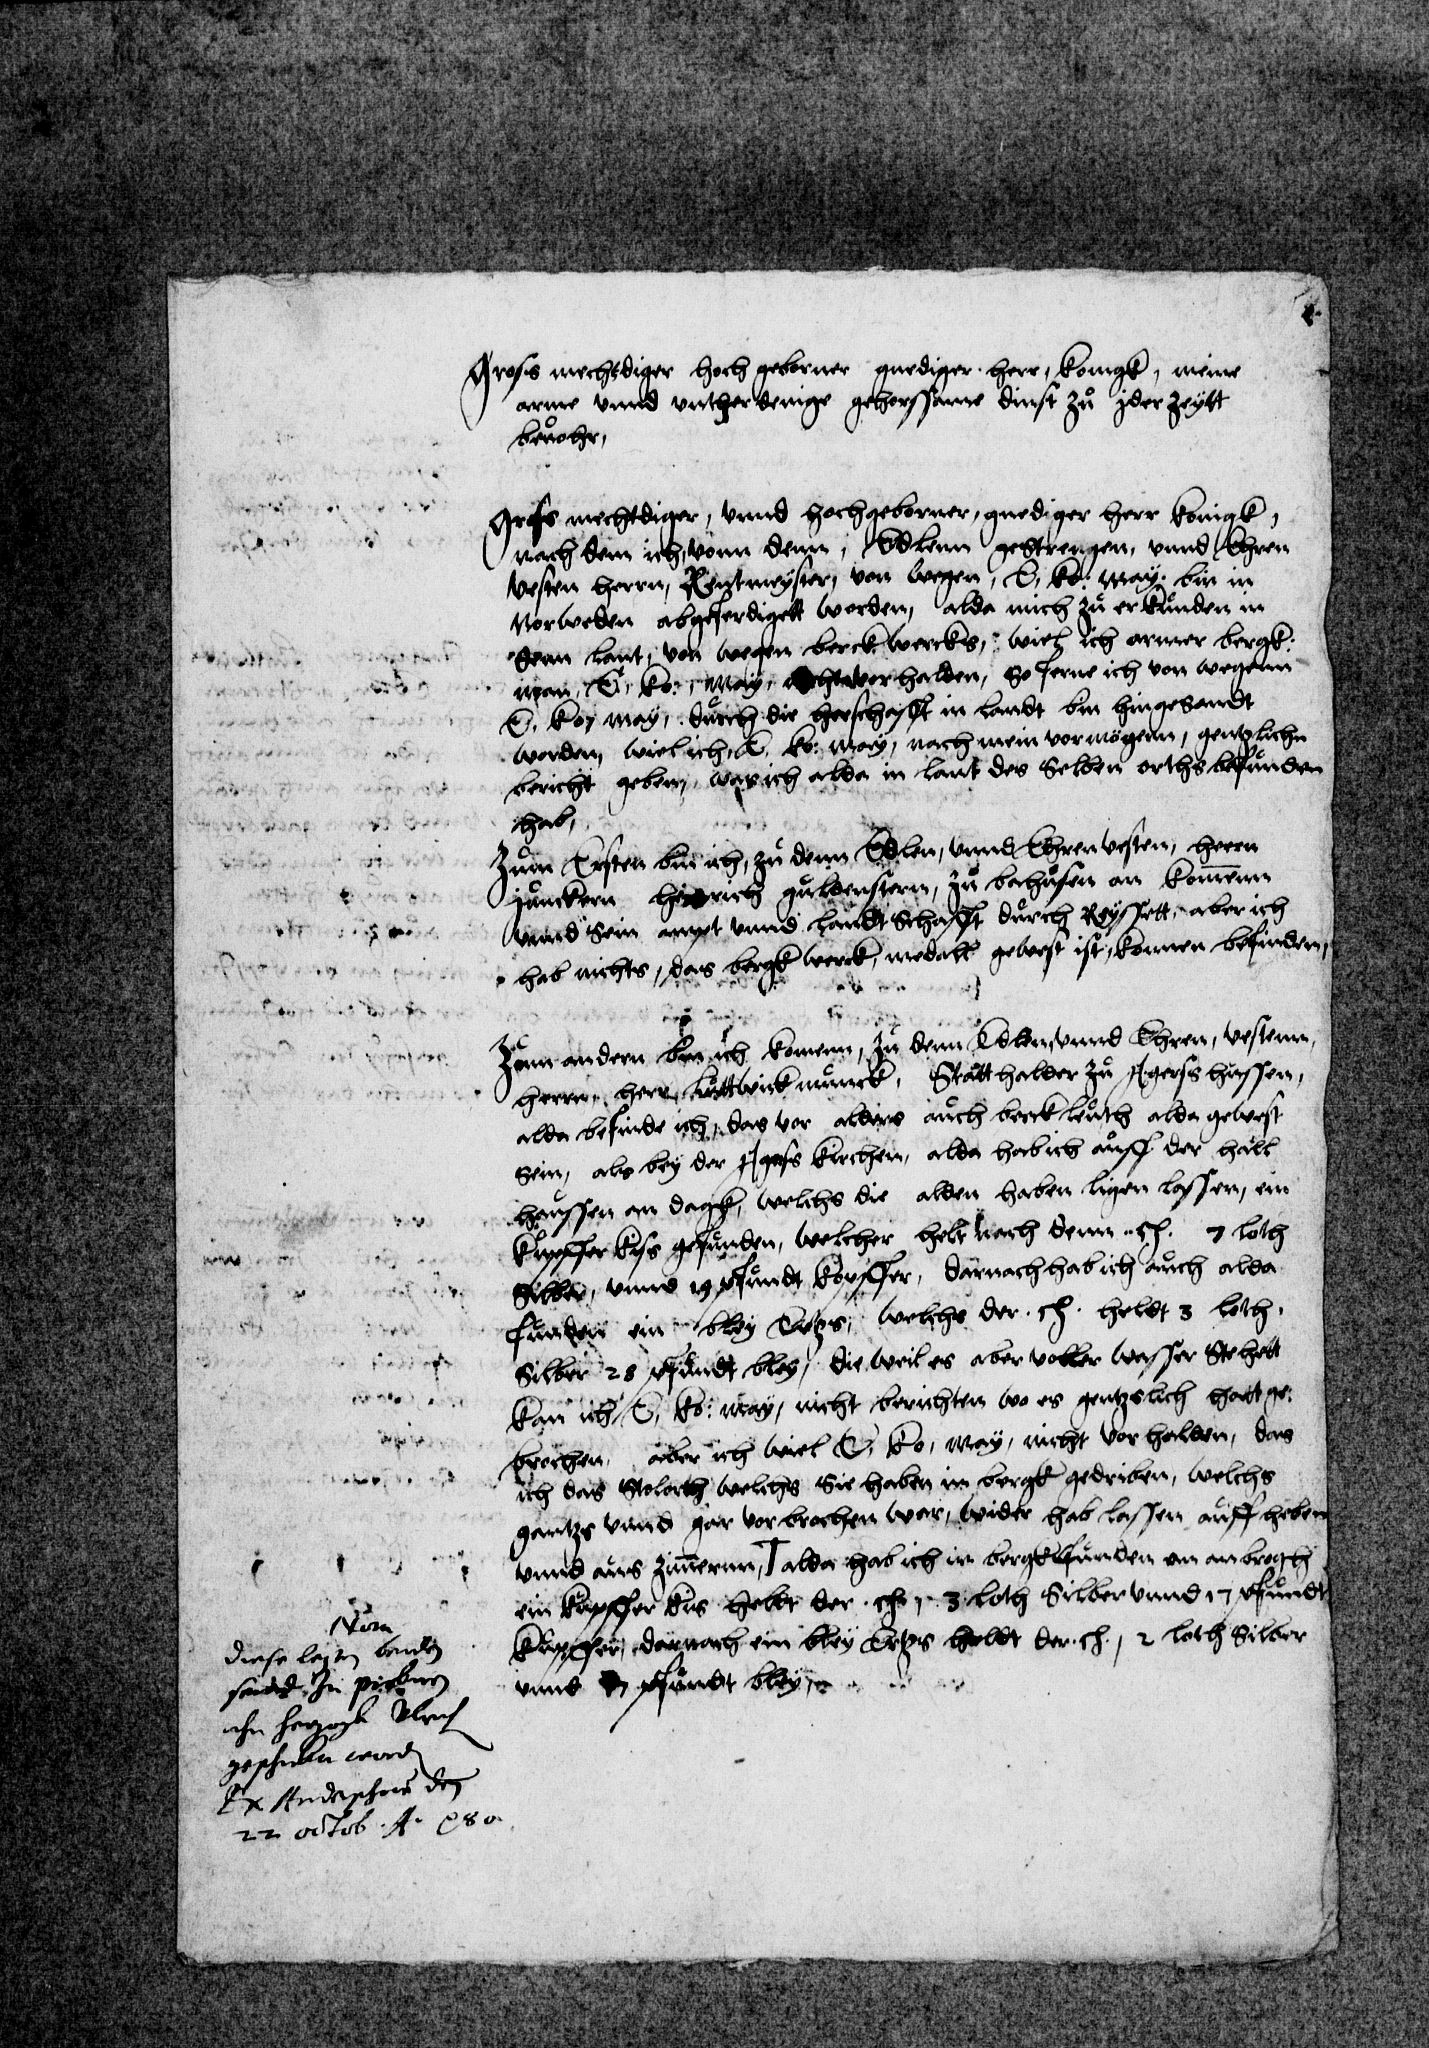 Gross mechtdiger hoch geborner gnediger herr, konigk, meine
arme vnnd vntherdenige gehorssame dinst zu jder zeytt
beuohr,
Gross mechtdiger, vnnd hochgeborner, gnediger herr konigk,
nach dem ich, vonn denn, Edlenn gestrengen, vnnd Ehren
vesten herrn, Rentmeyster, von wegen, E, ko: may: bin in
Norweden abgeferdigett worden, alda mich zu erkunden in
dem lant, von wegen berckwercks, wiel ich armer bergk:
man, E, ko:, may, nicht vorhalden, so ferne ich von wegenn
E. ko, may, durch die herschafft in landt bin hingesandt
worden, wiel ich, E. ko: may, nach mein vormögenn, gentzlichn
bericht geben, was ich alda in lant des selben orths befunden
hab,
Zum Ersten bin ich, zu denn Edlen, vnnd Ehrenvesten, herrn
junckern heinrich guldenstern, zu bahusen an komenn
vnnd sein ampt vnnd landtschafft durch Reyssett, aber ich
hab nichts, das bergkwerck, medalt gewest ist, konnen befinden,
Zum andern bin ich komenn, zu denn Edlen, vnnd Ehren, vestenn,
herrn, herr luttwick munck, Statthalder zu Agerss huyssen,
alda befinde ich, das vor alders auch berckleuth alda gewest
sein, als bey der Agess kirchen, alda hab ich auff der hall
haussen am dagk, welchs die alden haben ligen lassen, ein
kupffer kiss gefunden, welcher helt nach denn .ch. 7 loth
Silber, vnnd 19 pfundt kupffer, darnach hab ich auch alda
funden ein bley Ertzs, welchs der .ch. heldt 3 loth.
Silber 28 pfundt bley, die weil es aber voller wasser stehett
kan ich E, ko: may, nicht berichten wo es gentzslich hatt ge:
brochen, aber ich wiel E, ko, may, nicht vorhalden, das
ich das Stolorth welchs sie haben in bergk gedriben, welchs
gantzs vnnd gar vorbrochen war, wider hab lassen auff heben
vnnd aus zimernn, alda hab ich in bergk funden am anbroch
ein kupffer kis heldt der .ch., 3 loth Silber vnnd 17 pfundt
kupffer, darnach ein bley Ertzs heldt der .ch., 2 loth Silber
vnnd pfundt bley,
diese
In
herzogk Ulrich
Ex Anderschow den
22 octob. A. 80